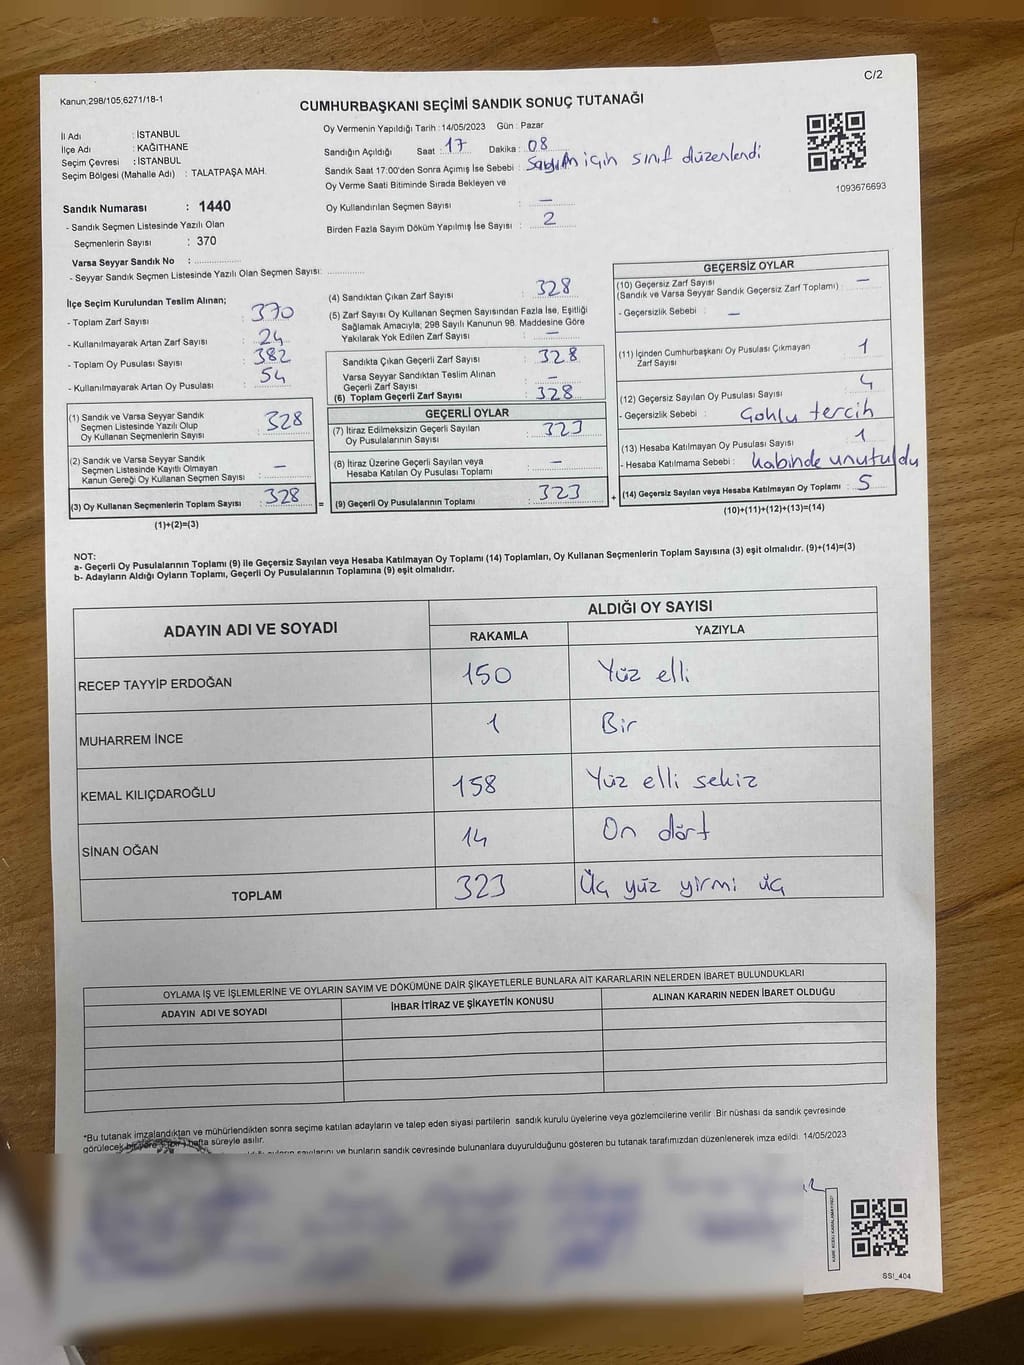 C/2
Kanun;298/105;6271/18-1
CUMHURBAŞKANI SEÇİMİ SANDIK SONUÇ TUTANAĞI
İl Adı : İSTANBUL
İlçe Adı : KAĞITHANE
Seçim Çevresi : İSTANBUL
Seçim Bölgesi (Mahalle Adı) : TALATPAŞA MAH.
Oy Vermenin Yapıldığı Tarih : 14/05/2023 Gün : Pazar
Sandığın Açıldığı Saat : 17 Dakika : 08
Sandık Saat 17:00'den Sonra Açımış İse Sebebi : için sınıf düzenlendi
Oy Verme Saati Bitiminde Sırada Bekleyen ve
Oy Kullandırılan Seçmen Sayısı : —
Birden Fazla Sayım Döküm Yapılmış İse Sayısı : 2
1093676693
Sandık Numarası : 1440
- Sandık Seçmen Listesinde Yazılı Olan
Seçmenlerin Sayısı : 370
Varsa Seyyar Sandık No :
- Seyyar Sandık Seçmen Listesinde Yazılı Olan Seçmen Sayısı:
İlçe Seçim Kurulundan Teslim Alınan;
- Toplam Zarf Sayısı : 370
- Kullanılmayarak Artan Zarf Sayısı : 24
- Toplam Oy Pusulası Sayısı : 382
- Kullanılmayarak Artan Oy Pusulası : 54
(1) Sandık ve Varsa Seyyar Sandık
Seçmen Listesinde Yazılı Olup
Oy Kullanan Seçmenlerin Sayısı : 328
(2) Sandık ve Varsa Seyyar Sandık
Seçmen Listesinde Kayıtlı Olmayan
Kanun Gereği Oy Kullanan Seçmen Sayısı : —
(3) Oy Kullanan Seçmenlerin Toplam Sayısı : 328
(1)+(2)=(3)
(4) Sandıktan Çıkan Zarf Sayısı : 328
(5) Zarf Sayısı Oy Kullanan Seçmen Sayısından Fazla İse, Eşitliği
Sağlamak Amacıyla; 298 Sayılı Kanunun 98. Maddesine Göre
Yakılarak Yok Edilen Zarf Sayısı : —
Sandıkta Çıkan Geçerli Zarf Sayısı : 328
Varsa Seyyar Sandıktan Teslim Alınan
Geçerli Zarf Sayısı : —
(6) Toplam Geçerli Zarf Sayısı : 328
GEÇERLİ OYLAR
(7) İtiraz Edilmeksizin Geçerli Sayılan
Oy Pusulalarının Sayısı : 323
(8) İtiraz Üzerine Geçerli Sayılan veya
Hesaba Katılan Oy Pusulası Toplamı : —
= (9) Geçerli Oy Pusulalarının Toplamı : 323
GEÇERSİZ OYLAR
(10) Geçersiz Zarf Sayısı
(Sandık ve Varsa Seyyar Sandık Geçersiz Zarf Toplamı) : —
- Geçersizlik Sebebi : —
(11) İçinden Cumhurbaşkanı Oy Pusulası Çıkmayan
Zarf Sayısı : 1
(12) Geçersiz Sayılan Oy Pusulası Sayısı : 4
- Geçersizlik Sebebi : Çoklu tercih
(13) Hesaba Katılmayan Oy Pusulası Sayısı : 1
- Hesaba Katılmama Sebebi : kabinde unutuldu
+ (14) Geçersiz Sayılan veya Hesaba Katılmayan Oy Toplamı : 5
(10)+(11)+(12)+(13)=(14)
NOT:
a- Geçerli Oy Pusulalarının Toplamı (9) ile Geçersiz Sayılan veya Hesaba Katılmayan Oy Toplamı (14) Toplamları, Oy Kullanan Seçmenlerin Toplam Sayısına (3) eşit olmalıdır. (9)+(14)=(3)
b- Adayların Aldığı Oyların Toplamı, Geçerli Oy Pusulalarının Toplamına (9) eşit olmalıdır.
ADAYIN ADI VE SOYADI ALDIĞI OY SAYISI
RAKAMLA YAZIYLA
RECEP TAYYİP ERDOĞAN 150 Yüz elli
MUHARREM İNCE 1 Bir
KEMAL KILIÇDAROĞLU 158 Yüz elli sekiz
SİNAN OĞAN 14 On dört
TOPLAM 323 Üç yüz yirmi üç
OYLAMA İŞ VE İŞLEMLERİNE VE OYLARIN SAYIM VE DÖKÜMÜNE DAİR ŞİKAYETLERLE BUNLARA AİT KARARLARIN NELERDEN İBARET BULUNDUKLARI
ADAYIN ADI VE SOYADI İHBAR İTİRAZ VE ŞİKAYETİN KONUSU ALINAN KARARIN NEDEN İBARET OLDUĞU
*Bu tutanak imzalandıktan ve mühürlendikten sonra seçime katılan adayların ve talep eden siyasi partilerin sandık kurulu üyelerine veya gözlemcilerine verilir. Bir nüshası da sandık çevresinde
görülecek bir yere hafta süreyle asılır.
sayılarını ve bunların sandık çevresinde bulunanlara duyurulduğunu gösteren bu tutanak tarafımızdan düzenlenerek imza edildi. 14/05/2023
SSI_404